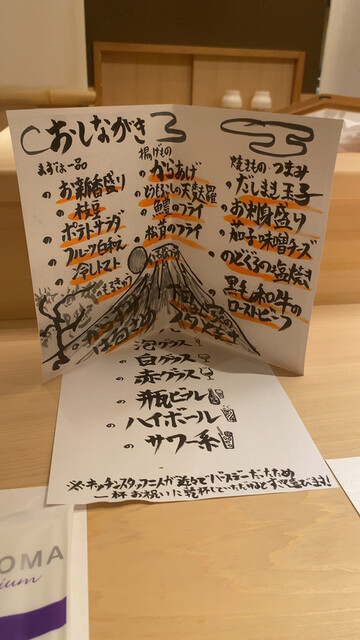 おしながき
まずは一品
お新香盛り
枝豆
ポテトサラダ
冷しトマト
揚げもの
からあげ
とうもろこしの天ぷら
鱧のフライ
松茸のフライ
焼きもの・つまみ
だしまき玉子
お刺身盛り
茄子味噌チーズ
のどぐろの塩焼き
黒毛和牛の
ローストビーフ
泡グラス
白グラス
赤グラス
瓶ビール
ハイボール
サワー系
※キッチンスタッフ二人が近々でバースデーだったため
一杯お祝いに乾杯していただけるとすごく喜びます!
OMA
ium